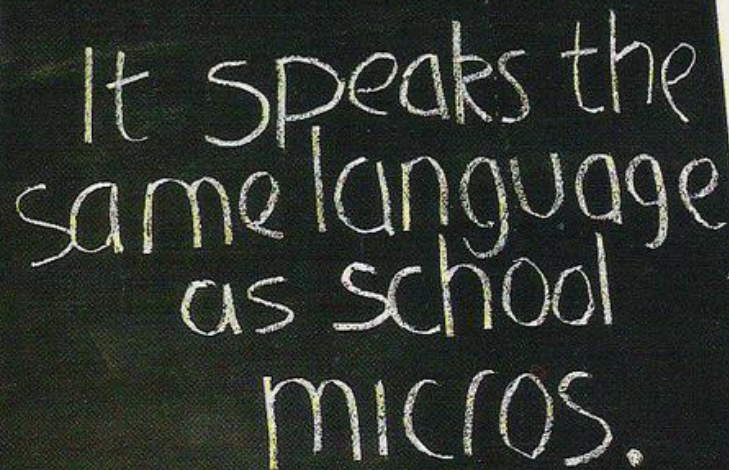 It speaks the
same language
as school
micros.